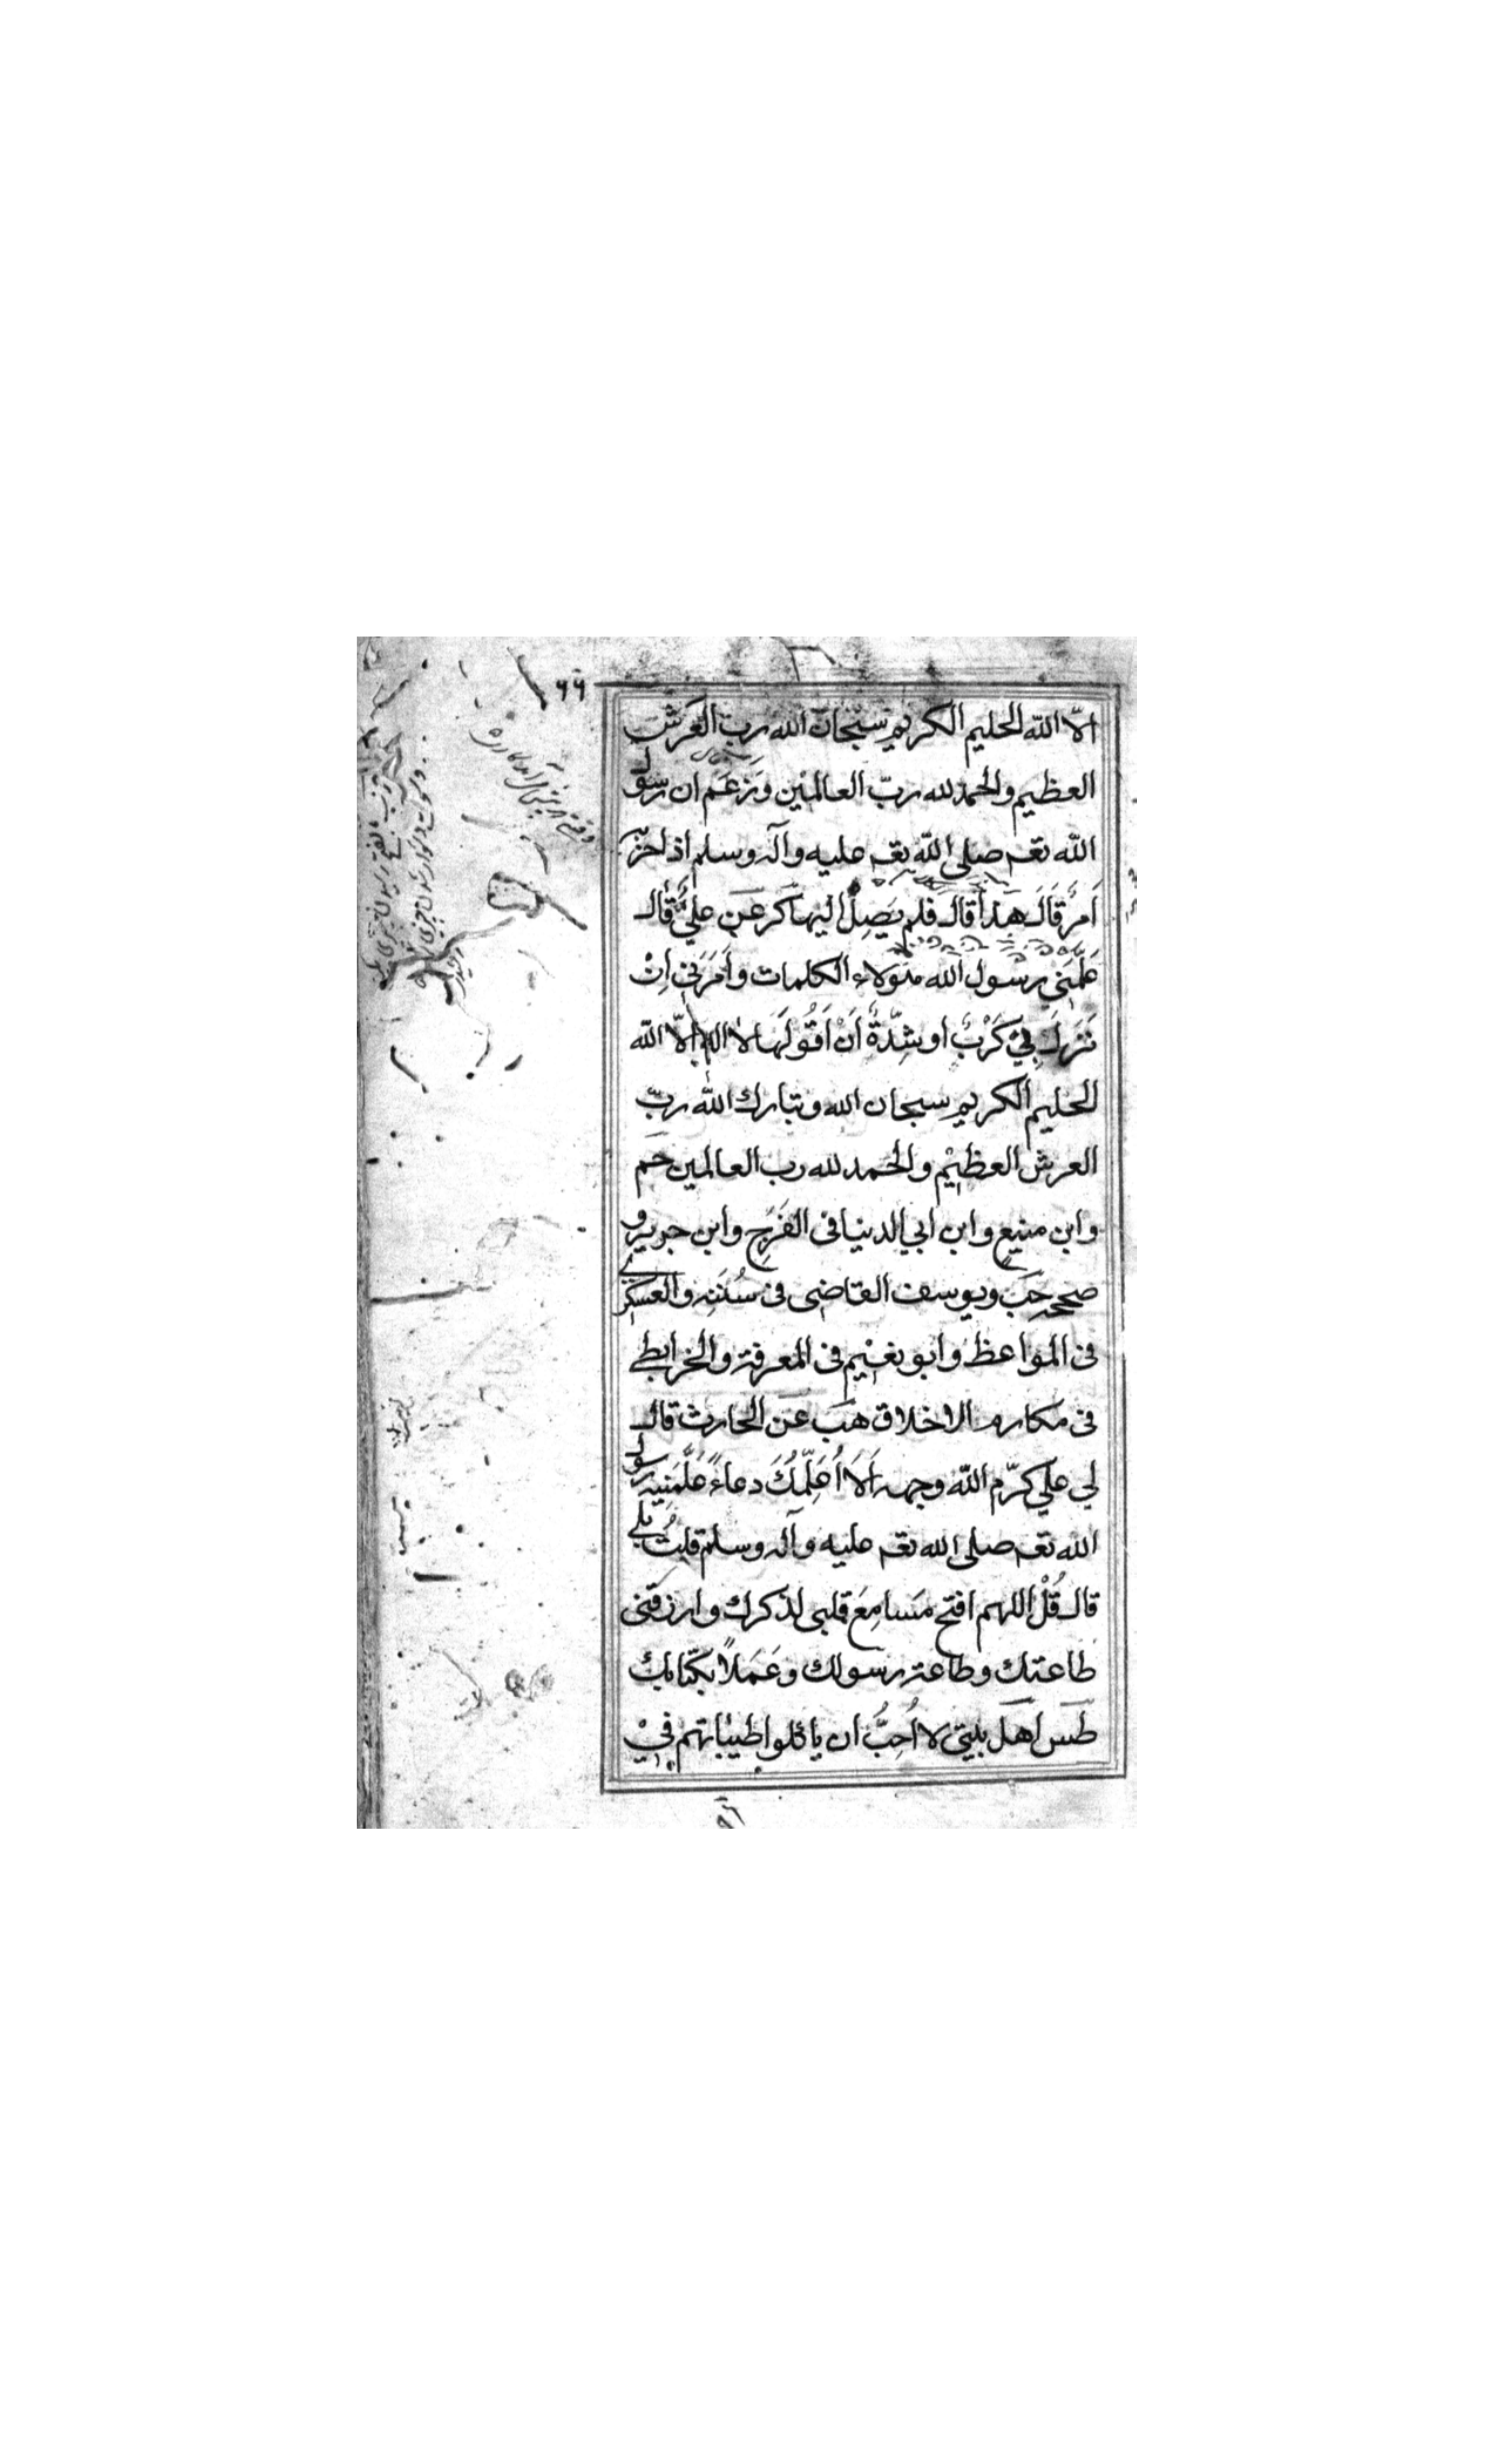 ٦٦
الّا الله الحليم الكريم سبحان الله رب العَرش
العظيم والحمد لله ربّ العالمين وَزَعَم ان رسول
الله تعم صلى الله تعم عليه وآله وسلم اذا حزبه
اَمرٌ قَالَ هَذا قال فلم يَصِلْ اليها كر عَن عليٍّ قال
عَلَّمَنِي رسول الله هَؤلاء الكلمات وأَمَرَنِي اِنْ
نَزَلَ بِي كَرْبٌ او شِدَّةٌ أَنْ اَقُولَهَا لا اله إلّا الله
الحليم الكريم سبحان الله وتبارك الله ربّ
العرش العظيم والحمد لله رب العالمين حَم
وابن منيع وابن ابي الدنيا في الفَرَج وابن جرير و
صححه حَب ويوسف القاضي في سُنَنِه والعسكري
في المواعظ وابو نعيم في المعرفة والخرايطي
في مكارم الاخلاق هَب عَن الحارث قال
لي علي كرّم الله وجهه أَلَا اُعَلِّمُكَ دعاءً عَلَّمَنِيه رسول
الله تعم صلى الله تعم عليه وآله وسلم قلتُ بلى
قال قُلْ اللهم افتح مَسامِعَ قلبي لذكرك وارزقنى
طاعتك وطاعة رسولك وعَمَلاً بكتابك
طَس اهَل بيتي لا اُحِبُّ ان ياكلوا طيباتهم فِيْ